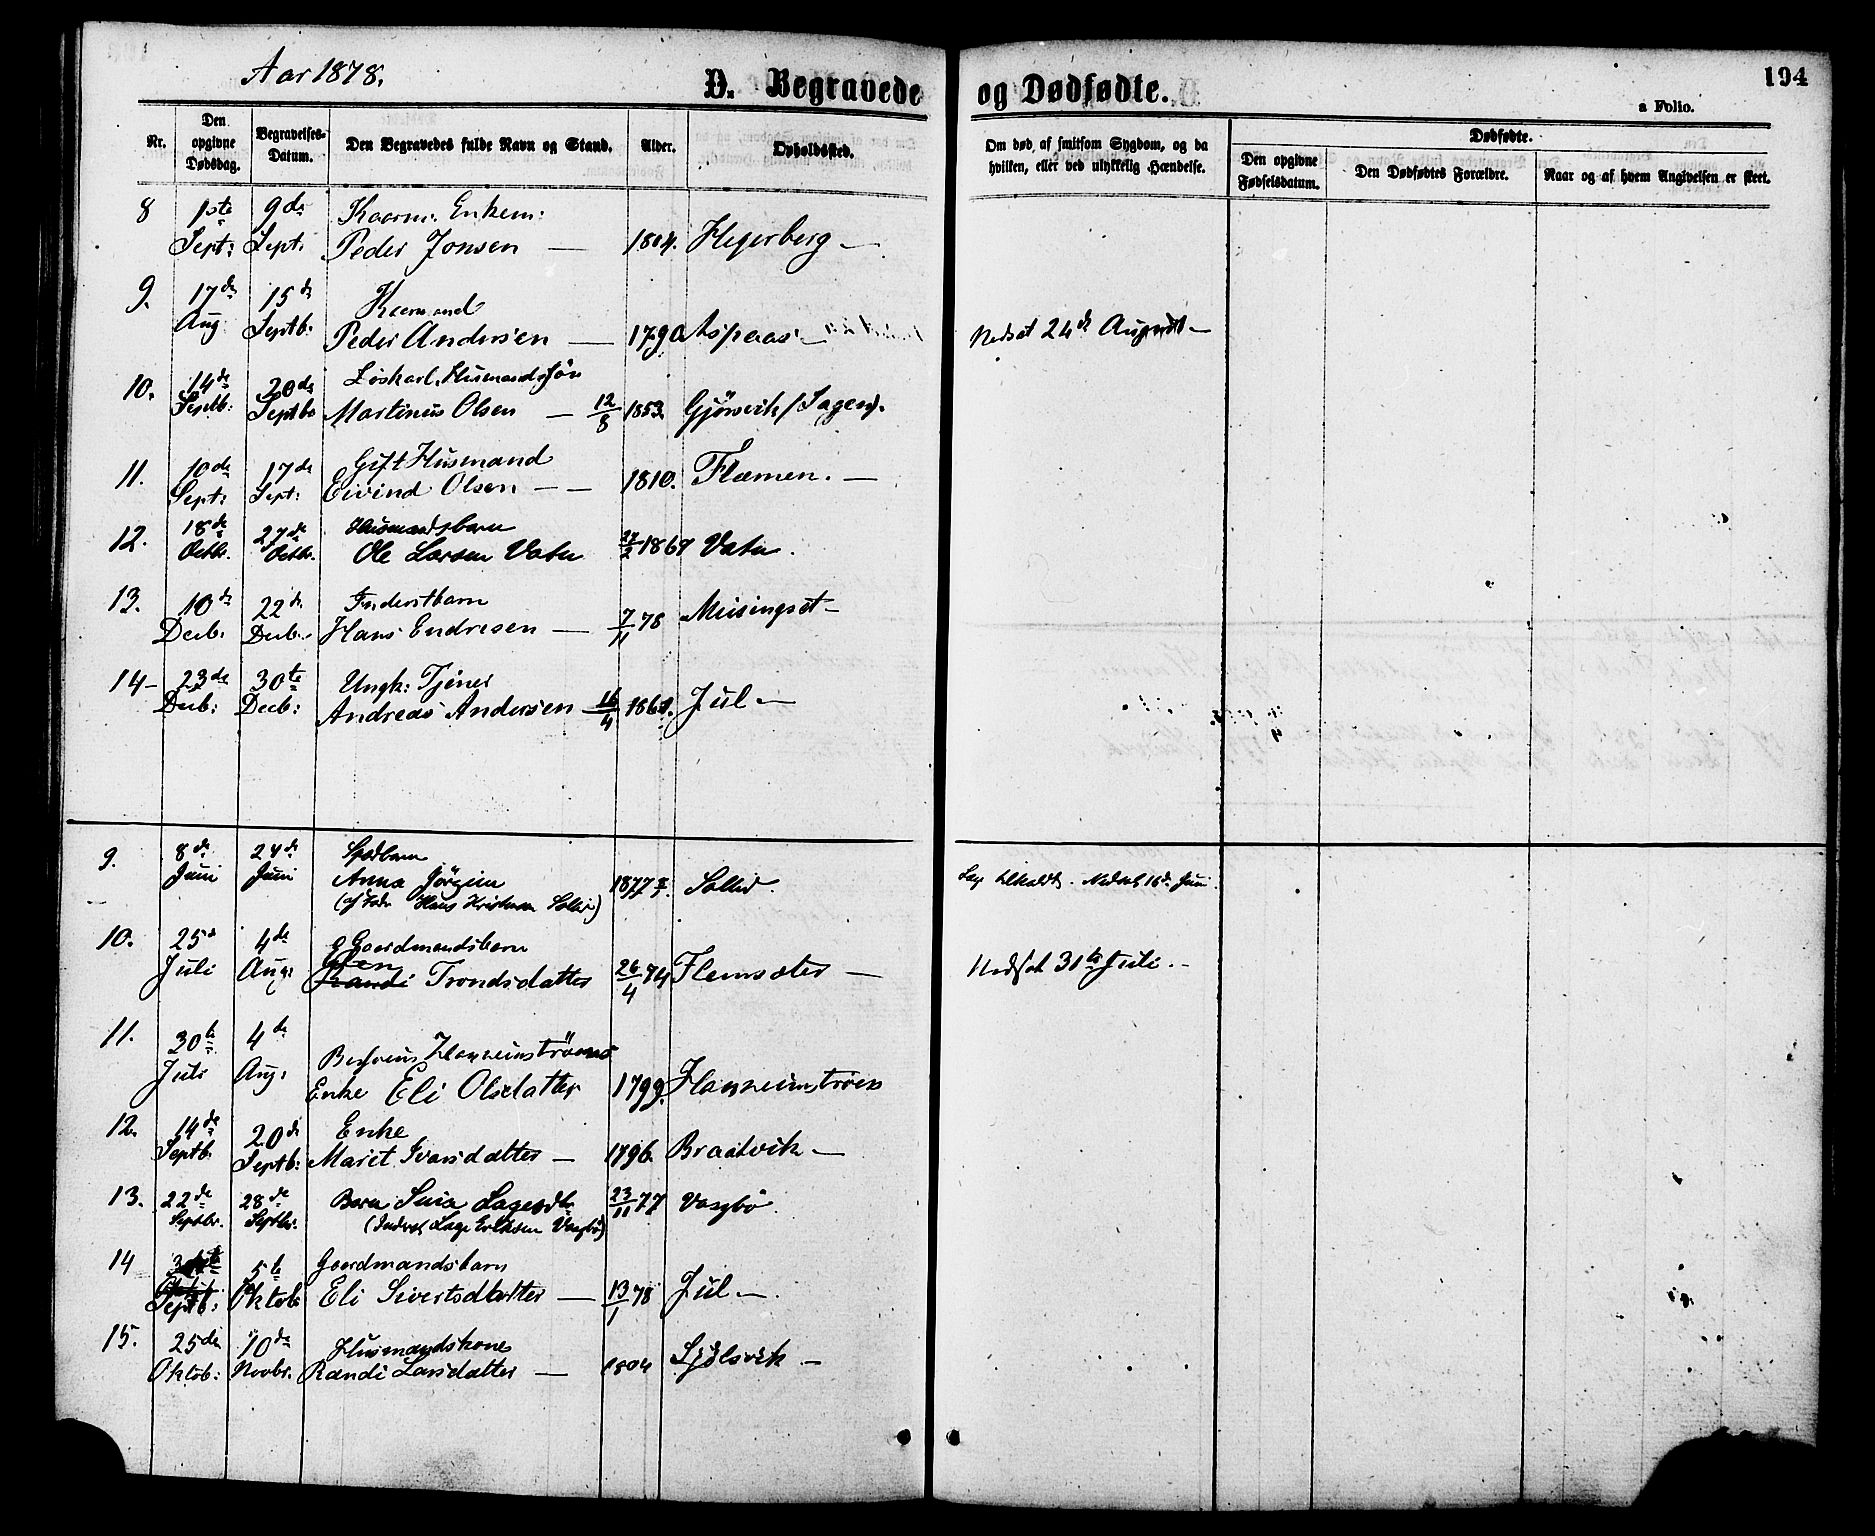 Aar 1878.
D. Begravede og Dødfødte.
194
a Folio.
Nr.
Den opgivne Dødsdag.
Begravelses-Datum.
Den Begravedes fulde Navn og Stand.
Alder.
Opholdssted.
Om død af smitsom Sygdom, og da hvilken, eller ved ulykkelig Hændelse.
Dødfødte.
Den opgivne Fødselsdatum.
Den Dødfødtes Forældre.
Naar og af hvem Angivelsen er skeet.
8 1ste 9de Kaarm. Enkem:
Sept: Sept. Peder Jonsen — 1804. Hegerberg —
9. 17de 15de Kaarmand
Aug Septb. Peder Andersen — 1790 Aspaas — Nedsat 24de August —
10. 14de 20de Løskarl, Husmandssøn
Septb: Septbr Martinus Olsen — 12/8 1853. Gjörsvik (Sagen).
11. 10de 17de Gift Husmand
Sept: Sept: Eivind Olsen — — 1810. Flemen. —
12. 18de 27de Husmandsbarn
Octbr. Octbr. Ole Larsen Vatn 27/2 1867 Vatn.
13. 10de 22de Inderstbarn
Decb: Decb. Hans Endresen — 7/11 78 Meisingset —
14 — 23de 30te Ungk: Tjener
Decb: Decb: Andreas Andersen 16/4 1861. Jul —
9. 8de 24de Spædbarn
Juni Juni Anna Jörgine 1877 Sollid.
(af Fader Hans Kristian Sollid) Nedsat 16de Juni.
10. 25de 4de Gaardmandsbarn
Juli Aug: Randi Trondsdatter 26/4 74 Flemsæter — Nedsat 31te Juli. —
11. 30te 4de
Juli Aug:
Enke Eli Olsdatter 1799.
12. 14de 20de Enke
Septb. Septb: Marit Ivarsdatter — 1796. Braatvik —
13. 22de 28de Barn Lagesdtr. 23/11 77 Vaagbö.
Septbr. Septbr. (Inderst Lage Eriksen Vaagbö)
14 5te Gaardmandsbarn
Septb: Oktob Eli Sivertsdatter — 13/1 78 Jul —
15. 25de 10de Husmandskone
Oktob: Novbr. Randi Larsdatter — 1804 Sjölsvik —